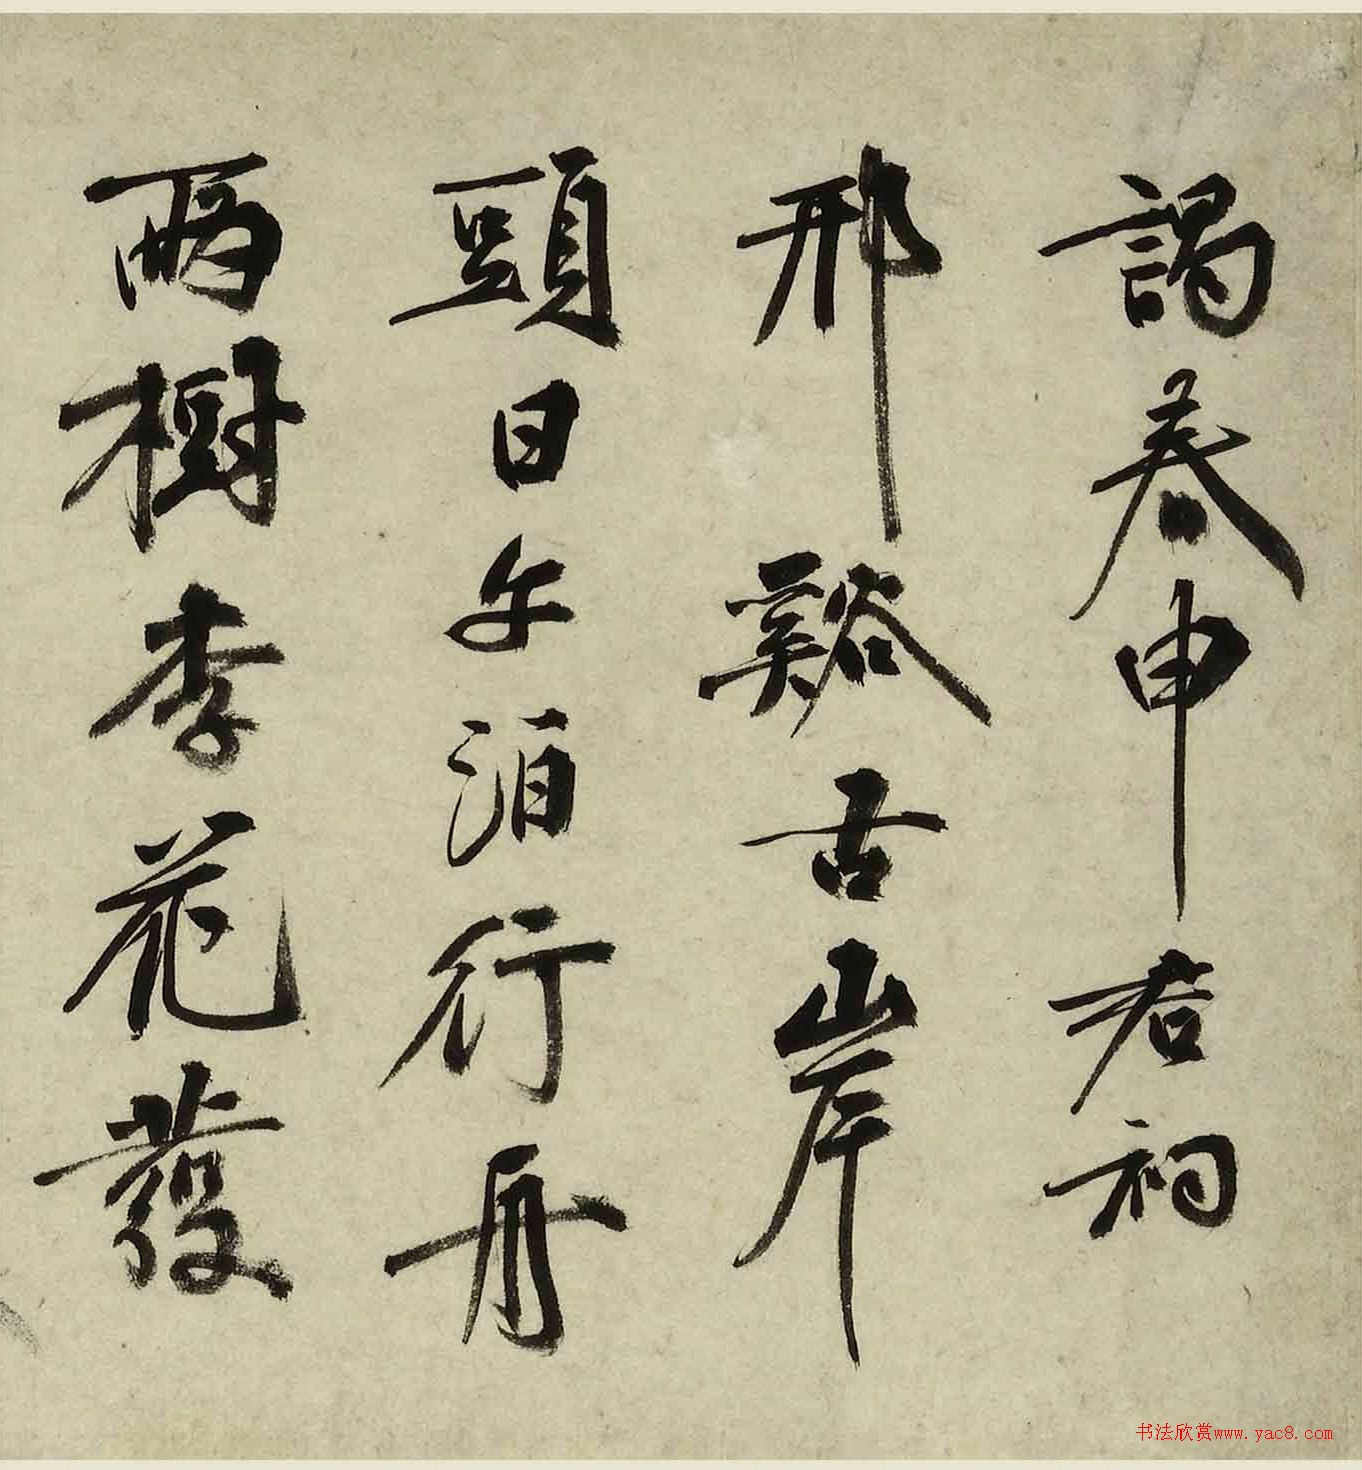 謁春申君祠
邢谿古岸
頭日午泊行舟
兩樹李花發
书法欣赏www.yac8.com